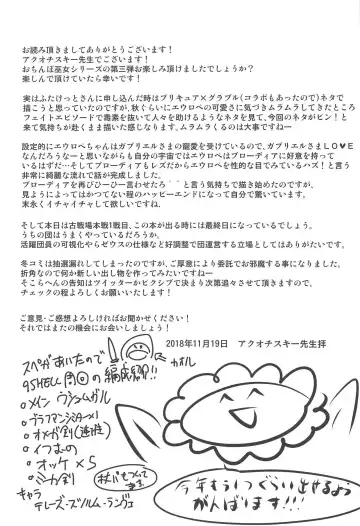 お読み頂きましてありがとうございます！
アクオチスキー先生でございます！
おちんぽ巫女シリーズの第三弾お楽しみ頂けましたでしょうか？
楽しんで頂けていたら幸いです！
実はふたけっとさんに申し込んだ時はプリキュア×グラブル（コラボもあったので）ネタで
描こうと思っていたのですが、秋ぐらいにエウロペの可愛さに気づきムラムラしてきたところ
フェイトエピソードで毒素を抜いて人々を助けるようなネタを見て、今回のネタがビン！と
来て気持ちが赴くまま描いた感じなります。ムラムラくるのは大事ですねー
設定的にエウロペちゃんはガブリエルさまの寵愛を受けているので、ガブリエルさまLO♥E
なんだろうなーと思いながらも自分の宇宙ではエウロペはブローディアに好意を持って
いるはずだ…そしてブローディアもレズだからエウロペを性的な目でみているハズ！と言う
非常に綺麗な流れで話が完成しました。
ブローディアを再びひーひー言わせたろ゛゛と言う気持ちで描き始めたのですが、
見ようによってはかつてない程のハッピーエンドになって自分で驚いています。
末永くイチャイチャして欲しいですね。
そして本日は古戦場本戦1戦目、この本が出る時には最終日になっているでしょう。
うちの団はうまくやっているだろうか。
活躍団員の可視化やらゼウスの仕様など好調整で団運営する立場としてはありがたいです。
冬コミは抽選漏れしてしまったのですが、ご厚意により委託でお邪魔する事になりました。
折角なので何か新しい出し物を作ってみたいですねー
そこらへんの告知はツイッターかピクシブで決まり次第追々させて頂きますので、
チェックの程よろしくお願いいたします！
ご意見・ご感想よろしければお聞かせください！
それではまたの機会にお会いしましょう！
2018年11月19日　アクオチスキー先生拝
スペがあいたので
カオル
の編成例!!
キャラ
今年もう1つぐらい出せるよう
がんばります!!!